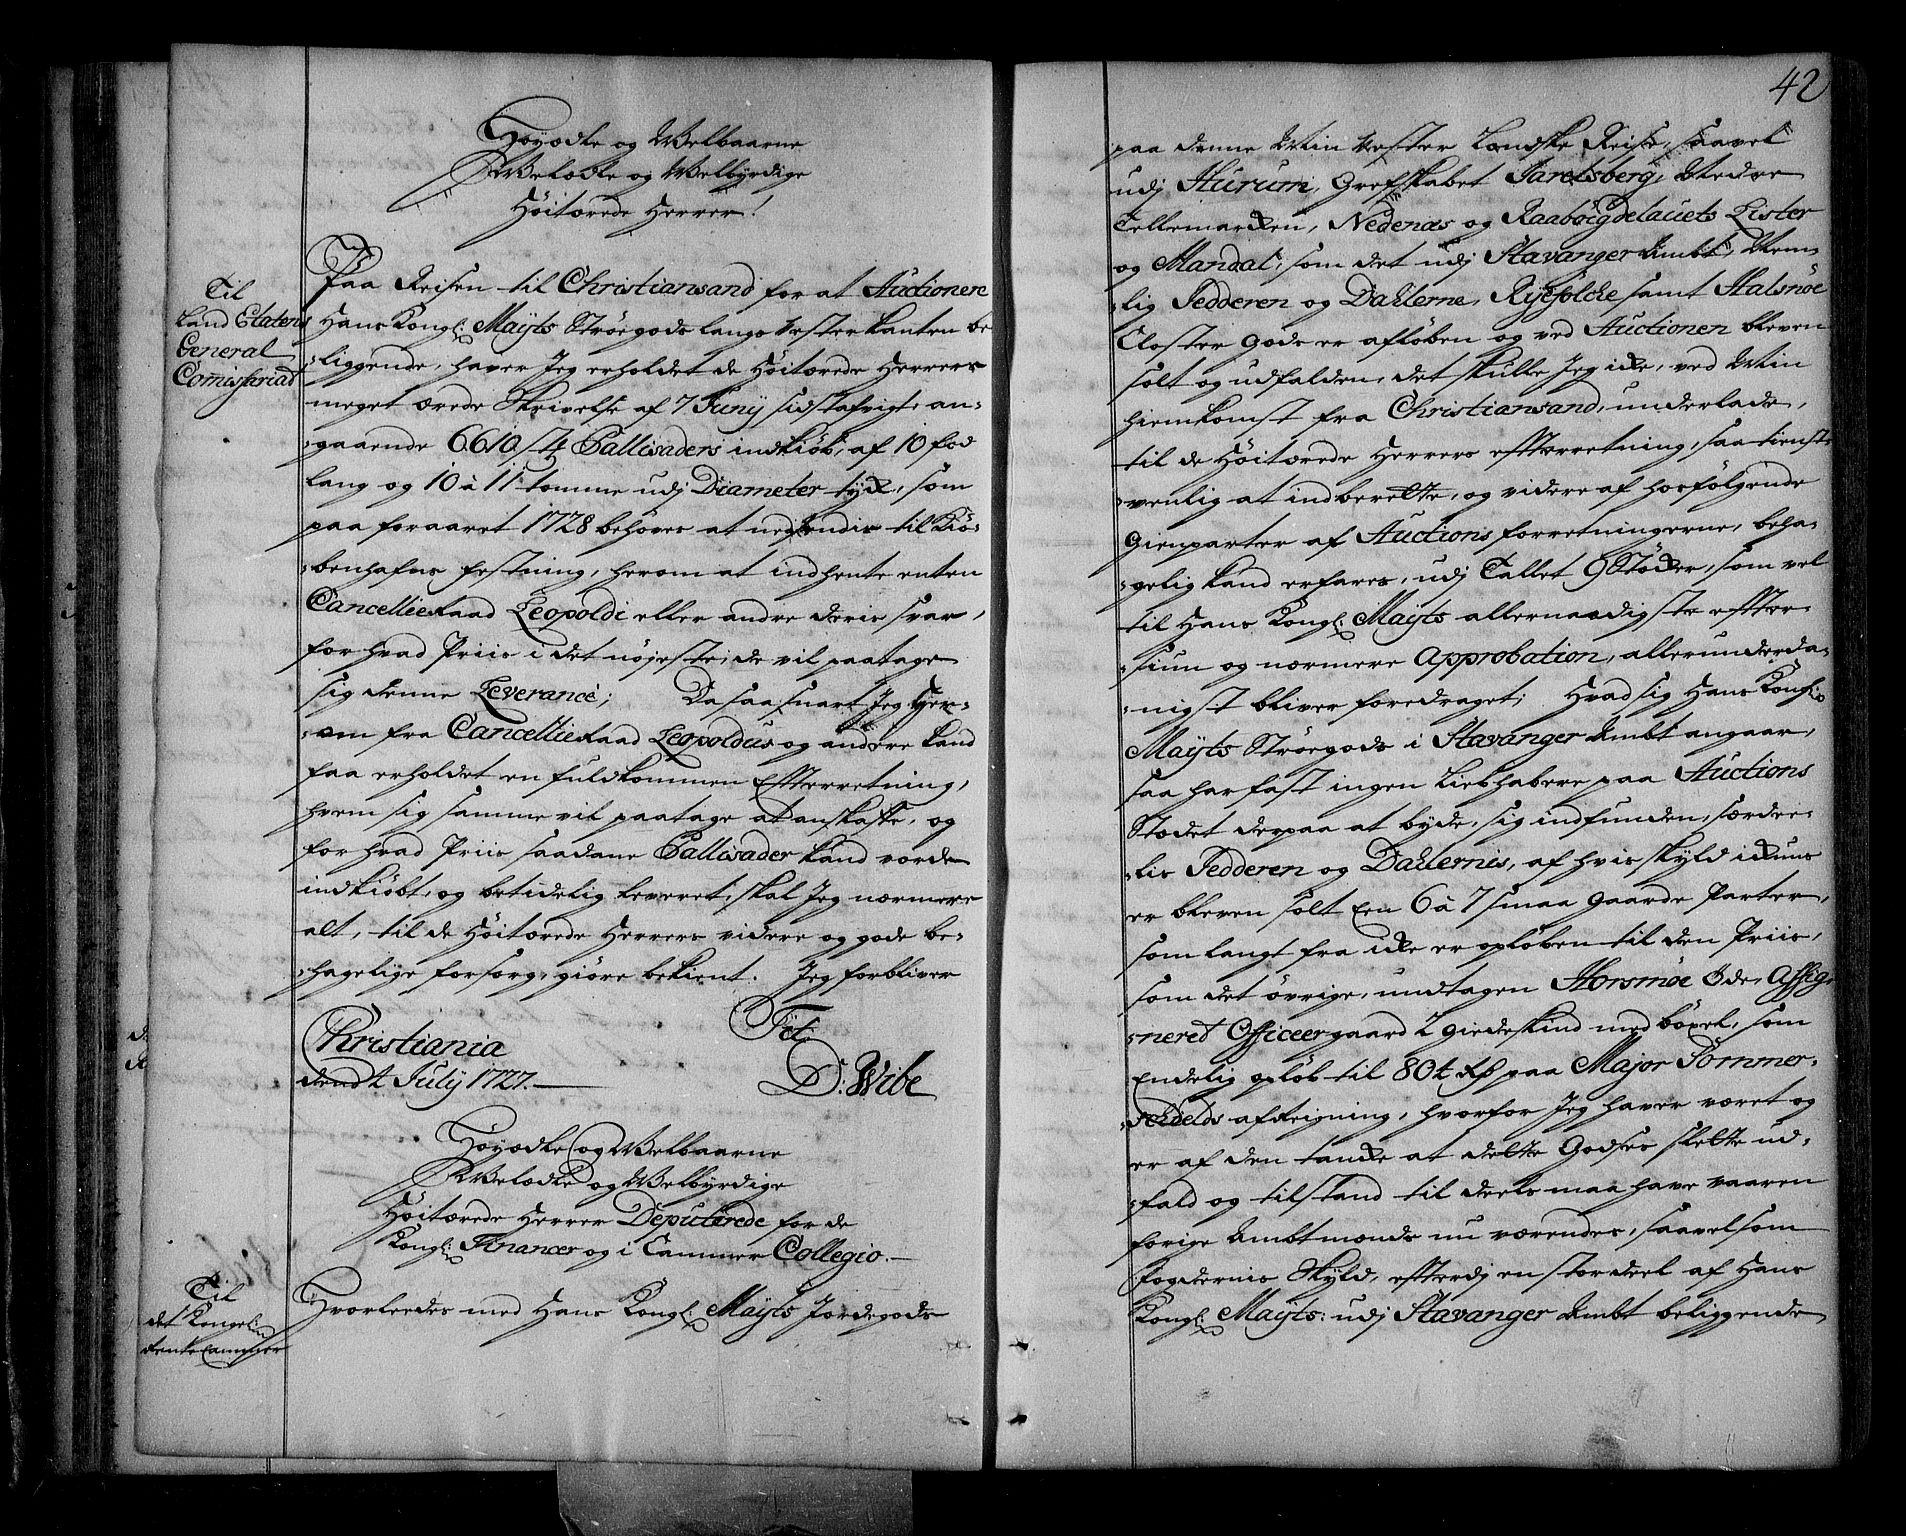 Høyædle og Welbaarne
Welædle og Welbyrdige
Høitærede Herrer!
Til
Land Etatens
General
Comissariad
Paa Reisen til Christiansand for at Auctionere
Hans Kongl: Mayts Strøegods langs Vesterkanten be-
liggende, haver Jeg erholdet de Høitærede Herrers
meget ærede Skrivelse af 7 Juny sidstafvigt, an-
gaaende 6610 st Pallisaders indkiøb, af 10 fod
lang og 10 à 11 tomme udj Diameter tyk, som
paa foraaret 1728 behøves at nedsendis til Kiø-
benhafns festning, herom at indhente enten
CancellieRaad Leopoldi eller andre deris svar,
for hvad Priis i det nøjeste, de vil paatage
sig denne Leverance; Da saasnart Jeg her-
om fra CancellieRaad Leopoldus og andere kand
faa erholdet en fuldkommen Efterretning,
hvem sig samme vil paatage at anskaffe, og
for hvad Priis saadane Pallisader kand vorde
indkiøbt, og betidelig leveret, skal Jeg nærmere
alt, til de Høitærede Herrers videre og gode be-
hagelige forsorg, giøre bekient. Jeg forbliver
Christiania
dend 4 July 1727.
Tet:
D. Wibe
Høyædle og Welbaarne
Welædle og Welbyrdige
Høitærede Herrer Deputerede for de
Kongl: Financer og i Cammer Collegio.
Til
det Kongel:
Rente Cammer
Hvorledes med Hans Kongl: Mayts Jordegods
42
paa denne Min Vester Landske Reise, saavel
udj Hurum, Grefskabet Jarelsberg, Nedre
Tellemarken, Nedenæs og Raabÿgdelauets Lister
og Mandal, som det udj Stavanger Ambt, Nem-
lig Jedderen og Dalerne, Ryefolcke samt Halsnøe
Closter Gods er afløben og ved Auctionen bleven
solt og udfalden, det skulle Jeg icke, ved Min
hiemkomst fra Christiansand, underlade,
til de Høitærede Herrers efterretning, saa tienst-
venlig at indberette, og videre af hosfølgende
Gienparter af Auctions forretningerne, beha-
gelig kand erfares, udj Tallet 9 Støcker, som vel
til Hans Kongl: Mayts allernaadigste efter-
siun og nærmere Approbation, allerunderda-
nigst bliver foredraget; Hvad sig Hans Kongl:
Mayts Strøegods i Stavanger Ambt angaar,
saa har fast ingen Liebhabere paa Auctions
Stædet derpaa at byde, sig indfunden, særdee-
lis Jedderen og Dalernis, af hvis skyld ickuns
er bleven solt Een 6 à 7 smaa gaarde Parter,
som langt fra icke er opløben til den Priis,
som det øvrige, undtagen Horsmøe Øde, Assig-
neret Officeer gaard 2 giedeskind med bøxel, som
Endelig opløb til 80 Rd paa Major Sommer-
feldts afReigning, hvorfor Jeg haver været og
er af den tancke at dette Godses slette ud-
fald og tilstand til deels maa have vaaren
forige Ambtmænds nu værendes, saavelsom
fogdernis Skyld, efterdj en stor deel af Hans
Kongl: Mayts: udj Stavanger Ambt beliggende